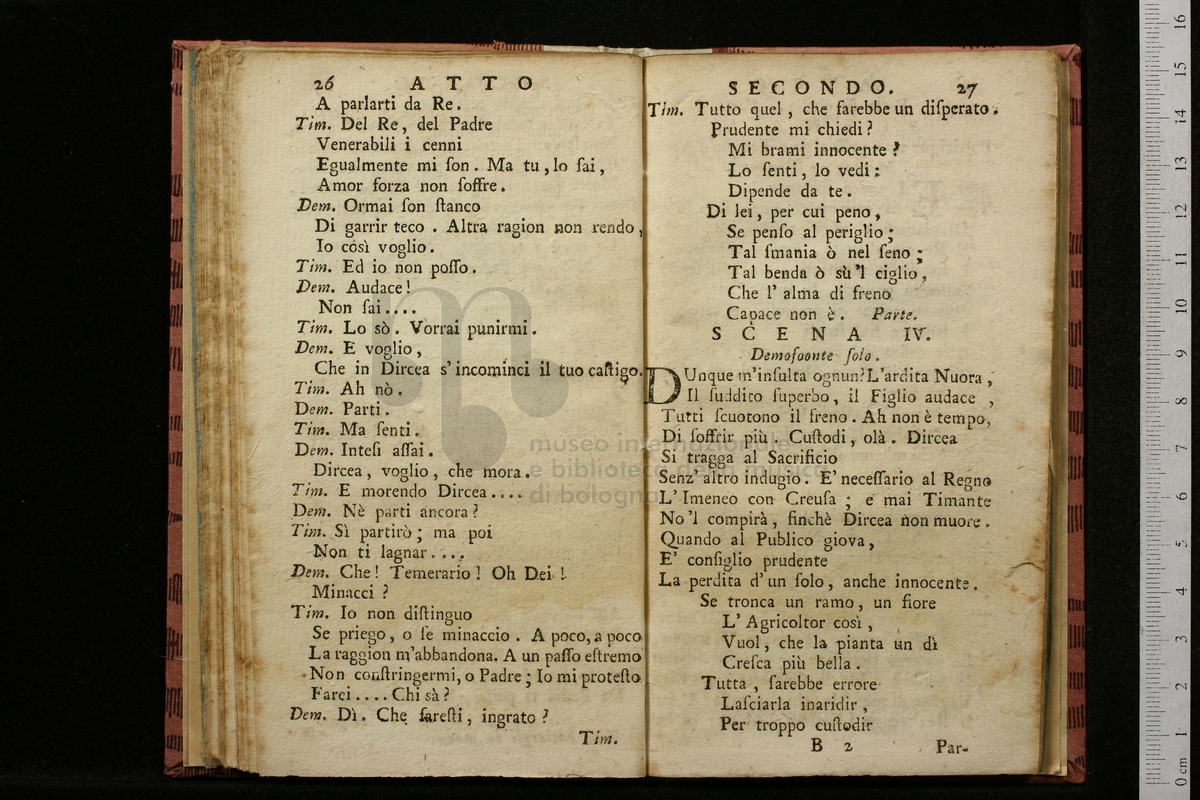 26 ATTO
A parlarti da Re.
Tim. Del Re, del Padre
Venerabili i cenni
Egualmente mi ſon. Ma tu, lo ſai,
Amor forza non ſoffre.
Dem. Ormai ſon ſtanco
Di garrir teco. Altra ragion non rendo,
Io così voglio.
Tim. Ed io non poſſo.
Dem. Audace!
Non ſai....
Tim. Lo sò. Vorrai punirmi.
Dem. E voglio,
Che in Dircea s'incominci il tuo caſtigo.
Tim. Ah nò.
Dem. Parti.
Tim. Ma ſenti.
Dem. Inteſi aſſai.
Dircea, voglio, che mora.
Tim. E morendo Dircea....
Dem. Nè parti ancora?
Tim. Sì partirò; ma poi
Non ti lagnar....
Dem. Che! Temerario! Oh Dei!
Minacci?
Tim. Io non diſtinguo
Se priego, o ſe minaccio. A poco, a poco
La raggion m'abbandona. A un paſſo eſtremo
Non conſtringermi, o Padre; Io mi proteſto
Farei.... Chi sà?
Dem. Dì. Che fareſti, ingrato?
Tim.
SECONDO. 27
Tim. Tutto quel, che farebbe un diſperato.
Prudente mi chiedi?
Mi brami innocente?
Lo ſenti, lo vedi:
Dipende da te.
Di lei, per cui peno,
Se penſo al periglio;
Tal ſmania ò nel ſeno;
Tal benda ò sù'l ciglio,
Che l'alma di freno
Capace non è. Parte.
SCENA IV.
Demofoonte ſolo.
DUnque m'inſulta ognun? L'ardita Nuora,
Il ſuddito ſuperbo, il Figlio audace,
Tutti ſcuotono il freno. Ah non è tempo,
Di ſoffrir più. Cuſtodi, olà. Dircea
Si tragga al Sacrificio
Senz'altro indugio. E' neceſſario al Regno
L'Imeneo con Creuſa; e mai Timante
No'l compirà, finchè Dircea non muore.
Quando al Publico giova,
E' conſiglio prudente
La perdita d'un ſolo, anche innocente.
Se tronca un ramo, un fiore
L'Agricoltor così,
Vuol, che la pianta un dì
Creſca più bella.
Tutta, ſarebbe errore
Laſciarla inaridir,
Per troppo cuſtodir
B 2 Par-
museo internazionale
e biblioteca della musica
di bologna
16
15
14
13
12
11
10
9
8
7
6
5
4
3
2
1
0 cm